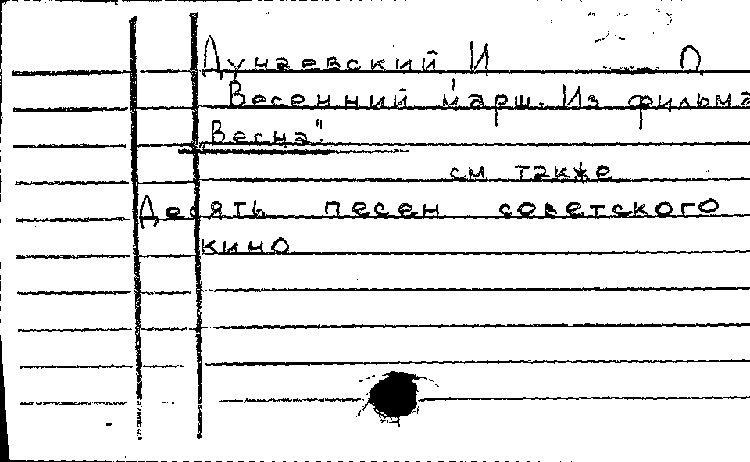 Дунаевский И О
Весенний марш. Из фильма
"Весна".
см также
Десять песен советского
кино